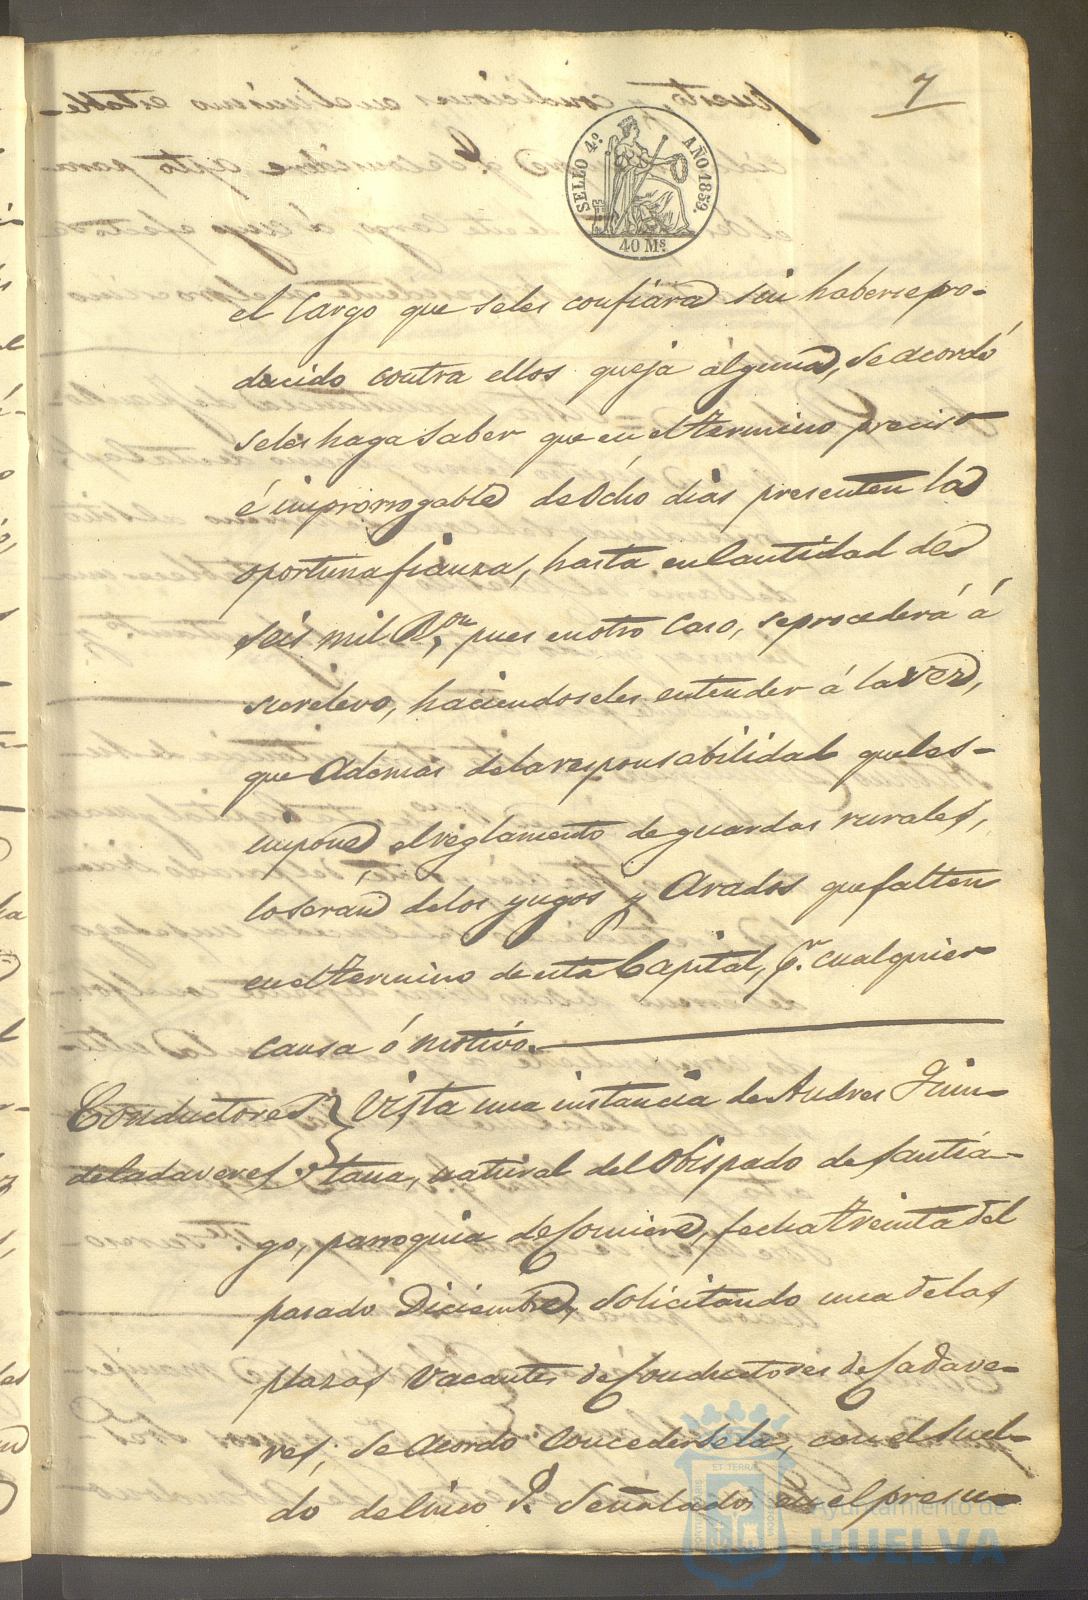 7
SELLO 4º AÑO 1859.
40 Ms.
el Cargo que seles confiára sin haberse pro-
ducido contra ellos queja alguna, se acordó
seles haga saber que en el termino preciso
é improrrogable de Ocho dias presenten la
oportuna fianza, hasta en Cantidad de
seis mil Rs. on pues en otro Caso, se procederá á
su relevo, haciendoseles entender á la vez,
que Ademas dela responsabilidad queles-
impone el reglamento de guardas rurales,
lo serán delos yugos y Arados que falten
en el termino de esta Capital, pr. cualquier
causa ó motivo.
Conductores } Vista una instancia de Andres Quin-
de Cadaveres } tana, natural del Obispado de Santia-
go, parroquia de, fecha treinta del
pasado Diciembre, Solicitando una delas
plazas Vacantes de Conductores de Cadave-
res, Se Acordó Concedersela, con el Suel-
do de Cinco rs. Señalados en el presu-
Ayuntamiento de
HUELVA